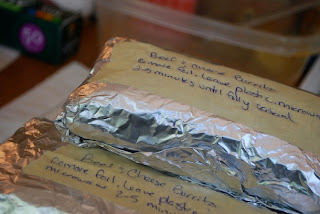 Beef & Cheese Burrito
Remove foil. Leave plastic. microwave
2-5 minutes until fully heated
Beef & Cheese Burrito
Remove foil. Leave plastic
microwave 2-5 minutes